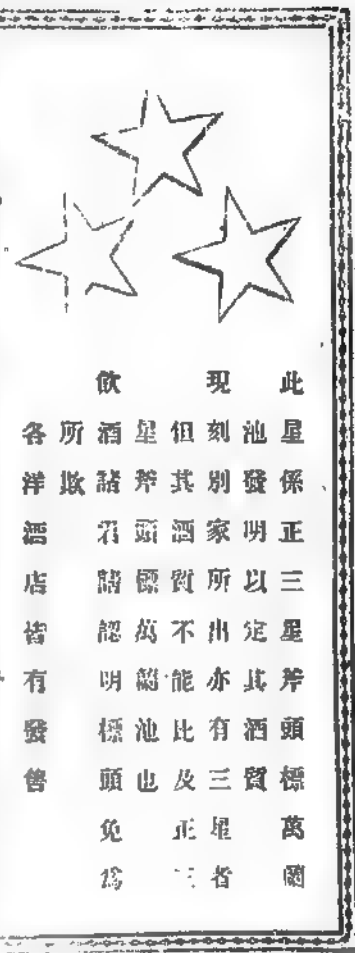 此星係正三星斧頭標萬蘭
池發明以定其酒質
現刻別家所出亦有三星者
但其酒質不能比及正三
星斧頭標萬蘭池也
飲酒諸君請認明標頭免為
所欺
各洋酒店皆有發售